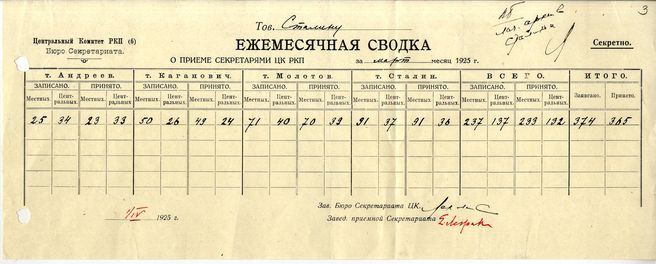 3
Тов. Сталину
Центральный Комитет РКП (б)
Бюро Секретариата.
ЕЖЕМЕСЯЧНАЯ СВОДКА
Секретно.
О ПРИЕМЕ СЕКРЕТАРЯМИ ЦК РКП за март месяц 1925 г.
т. Андреев. т. Каганович. т. Молотов. т. Сталин. ВСЕГО. ИТОГО.
ЗАПИСАНО. ПРИНЯТО. ЗАПИСАНО. ПРИНЯТО. ЗАПИСАНО. ПРИНЯТО. ЗАПИСАНО. ПРИНЯТО. ЗАПИСАНО. ПРИНЯТО. Записано. Принято.
Местных. Центральных. Местных. Центральных. Местных. Центральных. Местных. Центральных. Местных. Центральных. Местных. Центральных. Местных. Центральных. Местных. Центральных. Местных. Центральных. Местных. Центральных.
25 34 23 33 50 26 49 24 71 40 70 39 91 37 91 36 237 137 233 132 374 365
Зав. Бюро Секретариата ЦК
1/IV 1925 г.
Завед. приемной Секретариата